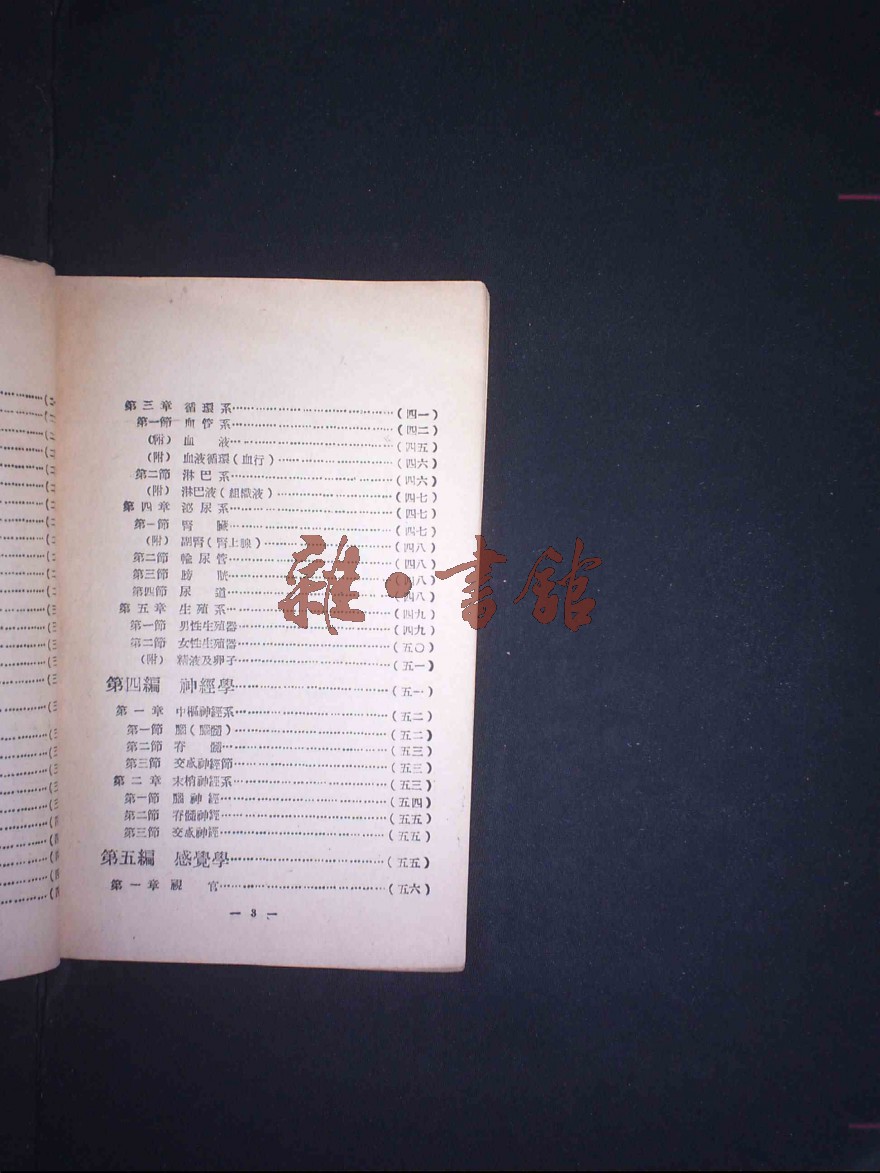 第三章 循環系……………………(四一)
第一節 血管系……………………(四二)
(附) 血 液……………………(四五)
(附) 血液循環(血行)……………………(四六)
第二節 淋巴系……………………(四六)
(附) 淋巴液(組織液)……………………(四七)
第四章 泌尿系……………………(四七)
第一節 腎 臟……………………(四七)
(附) 副腎(腎上腺)……………………(四八)
第二節 輸尿管……………………(四八)
第三節 膀 胱……………………(四八)
第四節 尿 道……………………(四八)
第五章 生殖系……………………(四九)
第一節 男性生殖器……………………(四九)
第二節 女性生殖器……………………(五〇)
(附) 精液及卵子……………………(五一)
第四編 神經學……………………(五一)
第一章 中樞神經系……………………(五二)
第一節 腦(腦髓)……………………(五二)
第二節 脊 髓……………………(五三)
第三節 交感神經節……………………(五三)
第二章 末梢神經系……………………(五三)
第一節 腦神經……………………(五四)
第二節 脊髓神經……………………(五五)
第三節 交感神經……………………(五五)
第五編 感覺學……………………(五五)
第一章 視 官……………………(五六)
— 3 —
雜·書館